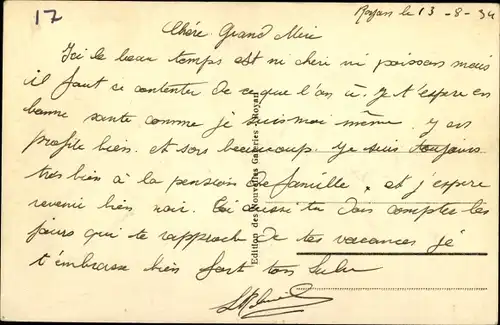 17
Royan le 13-8-34
Chère Grand Mère
Ici le beau temps est ni chéri ni poissons mais
il faut se contenter de ce que l'on a. Je t'espère en
bonne santé comme je suis moi même. J'en
profite bien. et sors beaucoup. Je suis toujours
très bien à la pension de famille, et j'espère
revenir bien noir. Toi aussi tu dois compter les
jours qui te rapproch de tes vacances je
t'embrasse bien fort ton Lulu
Edition des Nouvelles Galeries - Royan